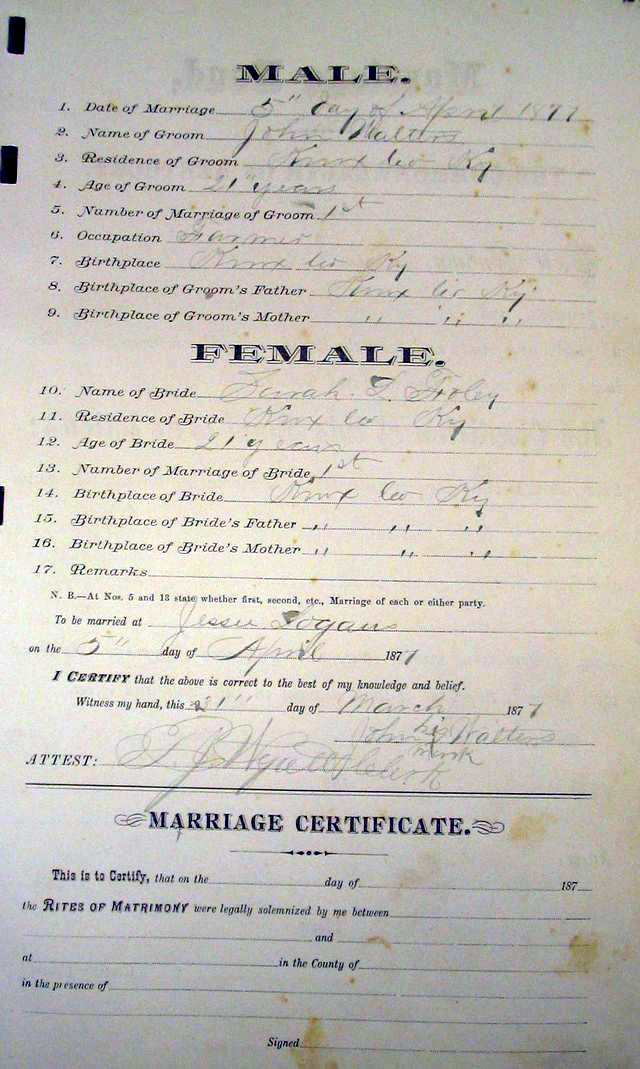 MALE.
1. Date of Marriage 5" day of April 1877
2. Name of Groom John Walters
3. Residence of Groom Knox Co Ky
4. Age of Groom 21 years
5. Number of Marriage of Groom 1st
6. Occupation Farmer
7. Birthplace Knox Co Ky
8. Birthplace of Groom's Father Knox Co Ky
9. Birthplace of Groom's Mother " " "
FEMALE.
10. Name of Bride Sarah
11. Residence of Bride Knox Co Ky
12. Age of Bride 21 years
13. Number of Marriage of Bride 1st
14. Birthplace of Bride Knox Co Ky
15. Birthplace of Bride's Father " " "
16. Birthplace of Bride's Mother " " "
17. Remarks
N. B.—At Nos. 5 and 13 state whether first, second, etc., Marriage of each or either party.
To be married at Jesse Logans
on the 5" day of April 1877
I CERTIFY that the above is correct to the best of my knowledge and belief.
Witness my hand, this day of March 1877
his
John Walters
mark
ATTEST: Clerk
MARRIAGE CERTIFICATE.
This is to Certify, that on the day of 187
the RITES OF MATRIMONY were legally solemnized by me between
and
at in the County of
in the presence of
Signed